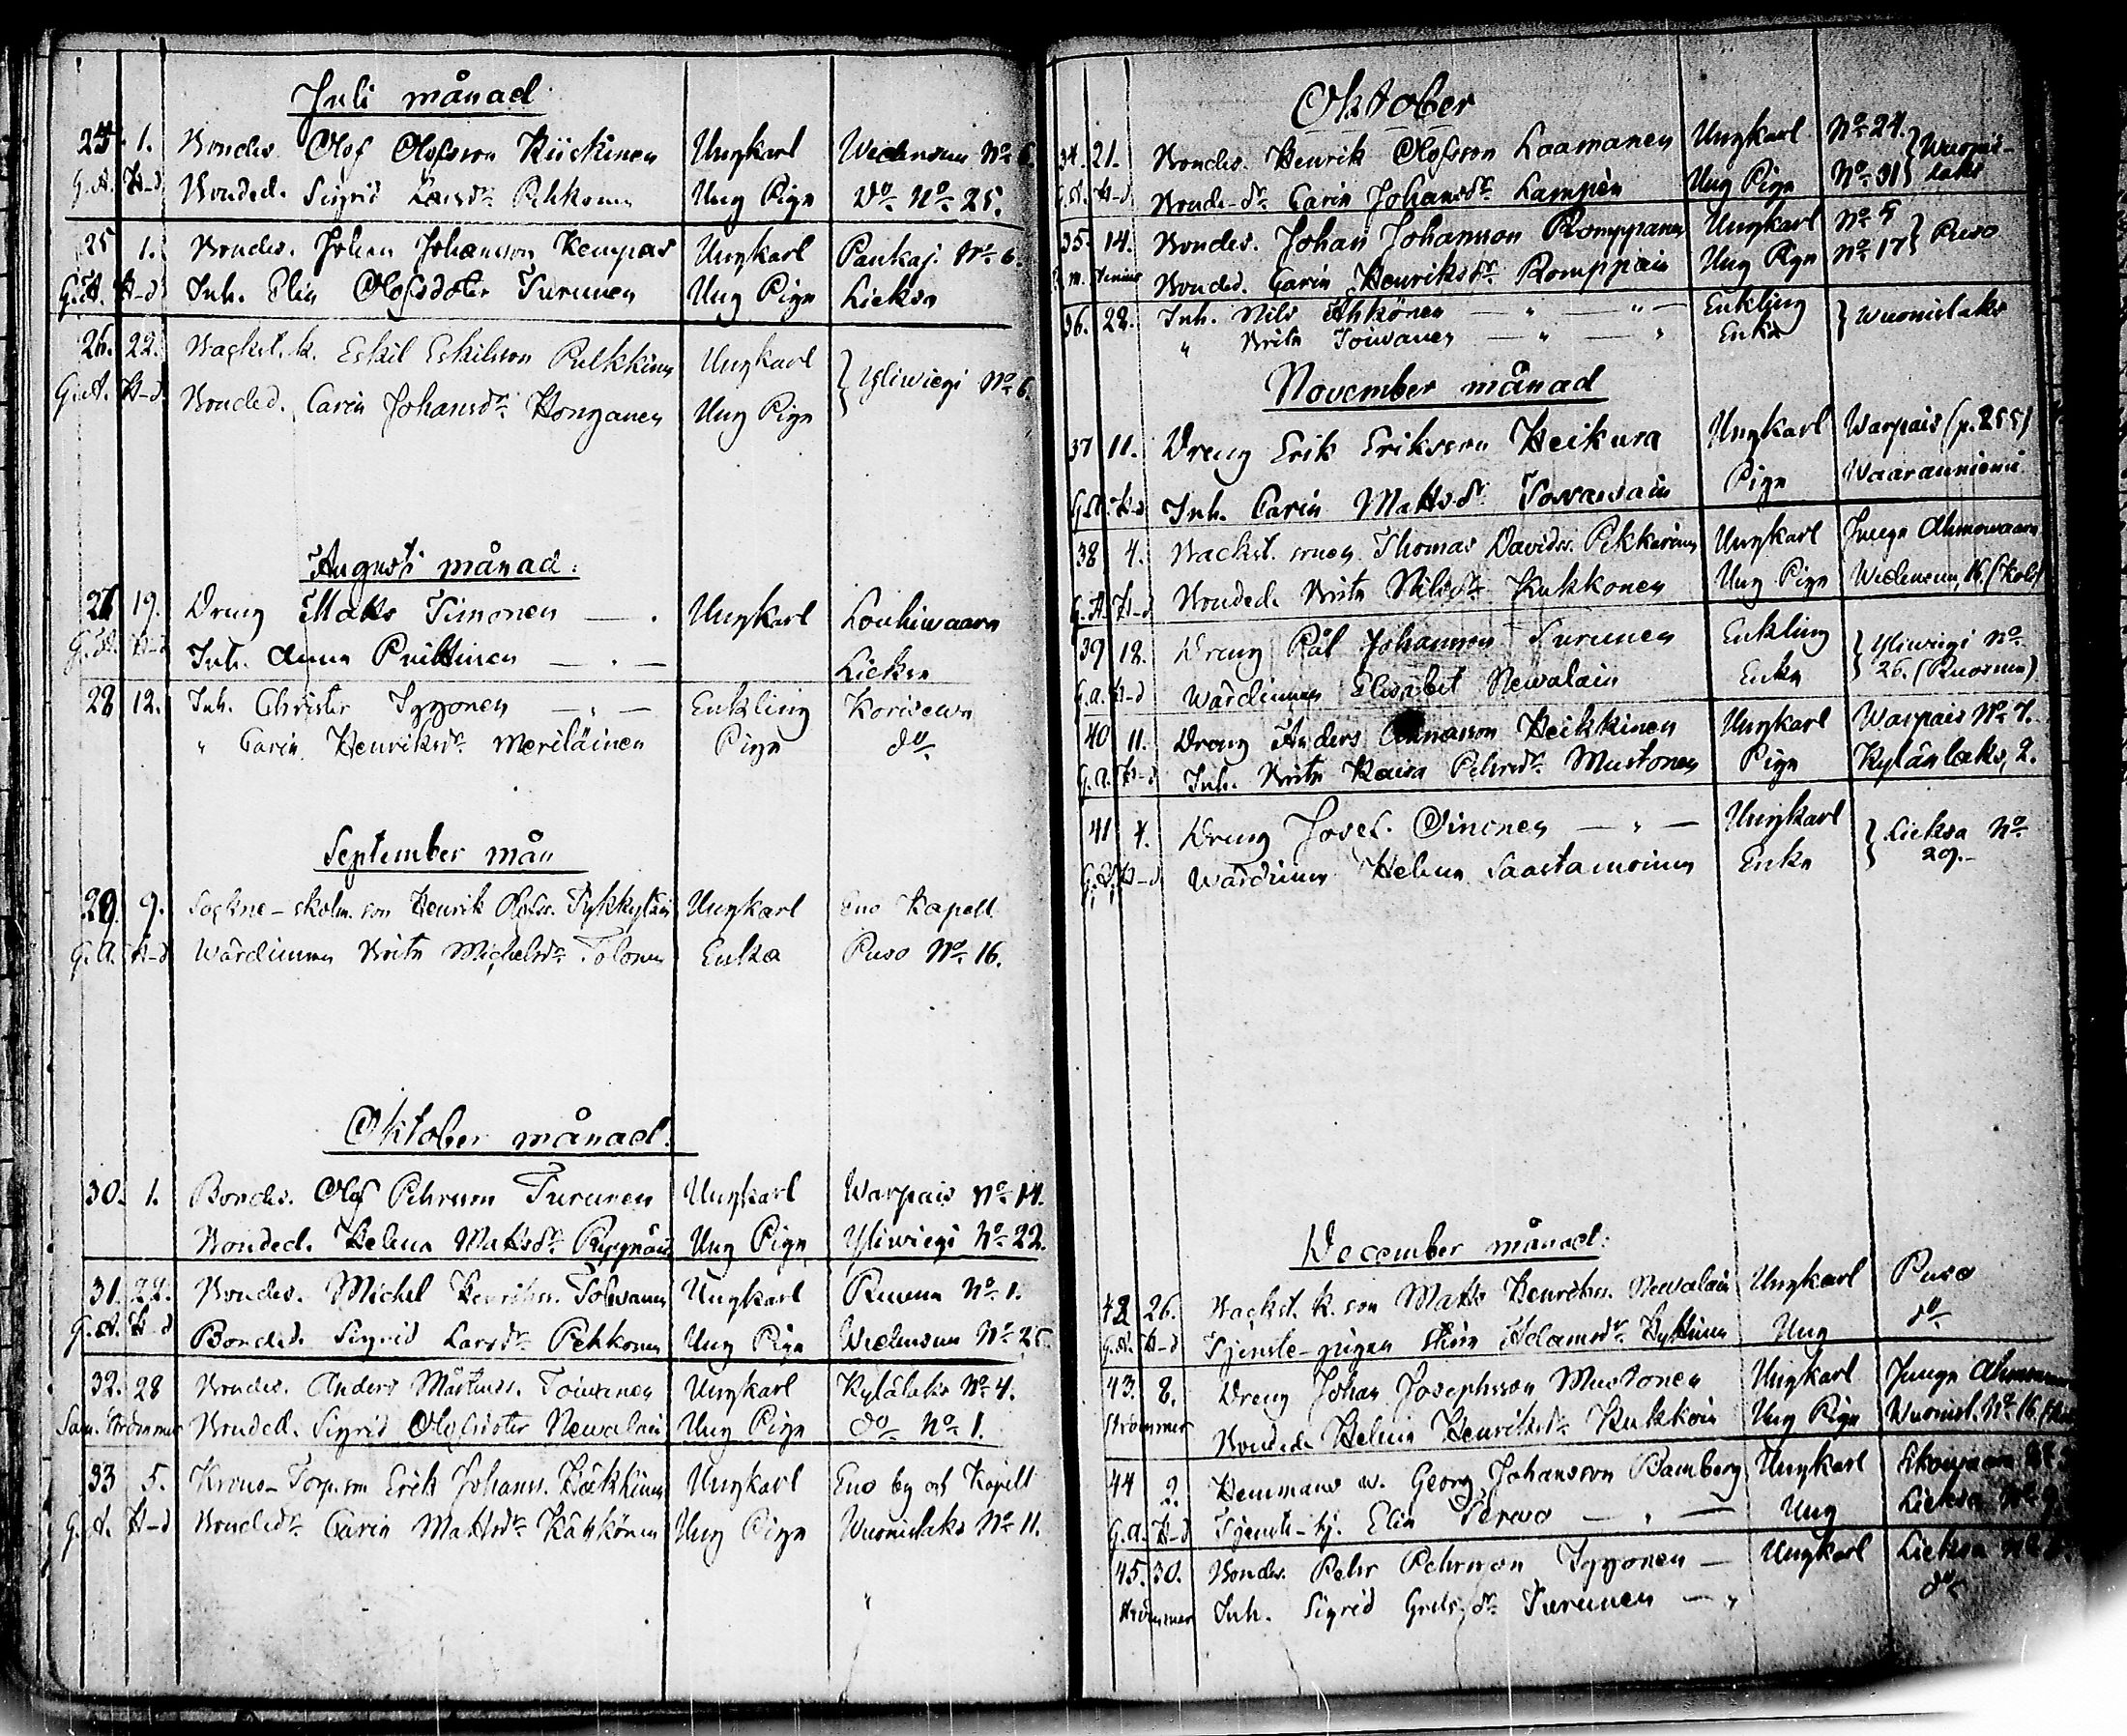 Juli månad
24. 1. Bondes. Olof Olofsson Kiiskinen Ungkarl Wiekensuu No 6.
G.A. H-d Bonded. Sigrid Larsdr Pehkonen Ung Piga Do No 25.
25 1. Bondes. Johan Johansson Kempas Ungkarl Pankaj. No 6.
G.A. H-d Inh. Elin Olofsdoter Turunen Ung Piga Lieksa
26. 22. Backst. k. Eskil Eskilsson Pulkkinen Ungkarl } Yliwiegi No 6
G.A. H-d Bonded. Carin Johansdr Honganen Ung Piga
Augusti månad:
27 19. Dreng Mats Timonen — . Ungkarl Louhiwaara
G.A. H-d Inh. Anna Puittinen — . — Lieksa
28 12. Inh. Christer Tyyonen — „ — Enkling Koriwewa
„ Carin Henriksdr Meriläinen Piga do
September mån
29. 9. Sockne-skolm. son Henrik Olofss. Tykkyläin Ungkarl Eno Kapell
G.A. H-d Wärdinnan Brita Michelsdr Tolonen Enka Puso No 16.
Oktober månad.
30. 1. Bondes. Olof Pehrsson Turunen Ungkarl Warpais No 14.
Bonded. Helena Mattsdr Ryynäin Ung Piga Yliwiegi No 22.
31. 22. Bondes. Michel Henrikss. Tolwanen Ungkarl No 1.
G.A. H-d Bonded. Sigrid Larsdr Pehkonen Ung Piga Wiekensuu No 25.
32. 28 Bondes. Anders Mårtenss. Toiwanen Ungkarl Kylälaks No 4.
Sam. Strömmer Bonded. Sigrid Olofsdoter Newalain Ung Piga do No 1.
33 5. Krono-Torp. son Erik Johanss. Häkkinen Ungkarl Eno by och Kapell
G.A. H-d Bondedr Carin Mattsdr Kähkönen Ung Piga Wuonislaks No 11.
Oktober
34. 21. Bondes. Henrik Olofsson Laamanen Ungkarl No 24. } Wuonis-
G.A. H-d Bonde-dr Carin Johansdr Lampèn Ung Piga No 31 } laks
35. 14. Bondes. Johan Johansson Romppanen Ungkarl No 5 } Puso
Bonded. Carin Henriksdr Romppain Ung Piga No 17
36. 28. Inh. Nils Ahkönen — „ — „ — Enkling } Wuonislaks
„ Brita Toiwanen — „ — „ Enka
November månad
37 11. Dreng Erik Eriksson Heikura Ungkarl Warpais (p. 255)
G.A. H-d Inh. Carin Mattsdr Piga Waaranniemi
38 4. Backst. sonen Thomas Davidss. Pikkarinen Ungkarl Junga Ahmowaara
G.A. H-d Bonded. Brita Nilsdr Kukkonen Ung Piga Wiekensuu, 16. (Koli)
39 18. Dreng Pål Johansson Turunen Enkling } Yliwiegi No
G.A. H-d Wärdinnan Elisabet Newalain Enka 26. (Ruosma)
40 11. Dreng Anders Heikkinen Ungkarl Warpais No 7.
G.A. H-d Inh. Brita Kaisa Pehrsdr Mustonen Piga Kylänlaks, 2.
41 4. Dreng Josef Oinonen — „ — Ungkarl } Lieksa No
G.A. H-d Wärdinnan Helena Saastamoinen Enka 29.
December månad:
42 26. Backst. k. son Matts Henrikss. Newalain Ungkarl Puso
G.A. H-d Tjenste-pigan Adamsdr Ung do
43. 8. Dreng Johan Josephsson Mustonen Ungkarl Junga
Strömmer Bonded. Helena Henriksdr Kukkoin Ung Piga Wuonisl. No 16.
44 2. Hemmans w. Georg Johansson Bamberg Ungkarl
G.A. H-d Tjenste-hj. Elin Terwo — „ — Ung Lieksa No 9
45. 30. Bondes. Pehr Pehrsson Tyyonen — Ungkarl Lieksa No
Strömmer Inh. Sigrid Gretsdr Turunen — „ do